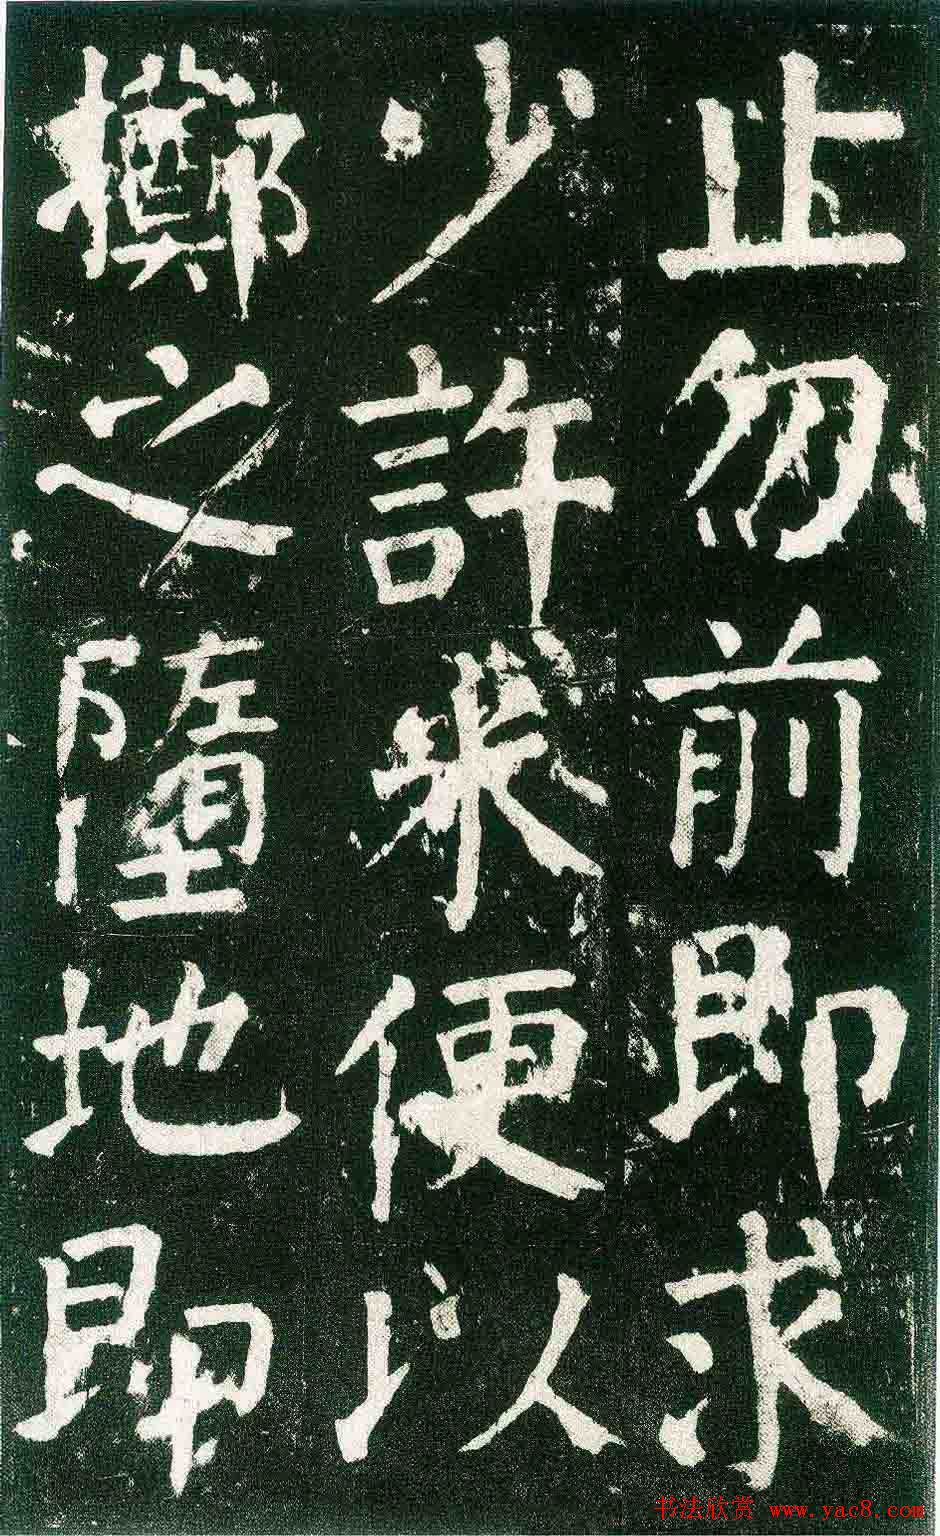 止勿前即求
少許米便以
擲之墮地即
书法欣赏 www.yac8.com